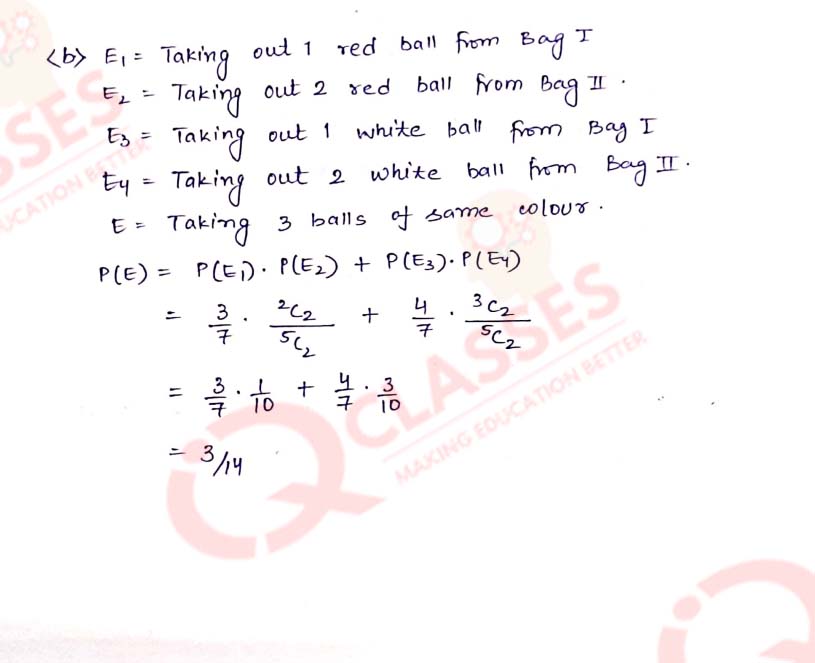 <b> E₁ = Taking out 1 red ball from Bag I
E₂ = Taking out 2 red ball from Bag II.
E₃ = Taking out 1 white ball from Bag I
E₄ = Taking out 2 white ball from Bag II.
E = Taking 3 balls of same colour.
P(E) = P(E₁)·P(E₂) + P(E₃)·P(E₄)
= 3/7 · ²C₂/⁵C₂ + 4/7 · ³C₂/⁵C₂
= 3/7 · 1/10 + 4/7 · 3/10
= 3/14
SSES
UCATION BETTER
CLASSES
MAKING EDUCATION BETTER